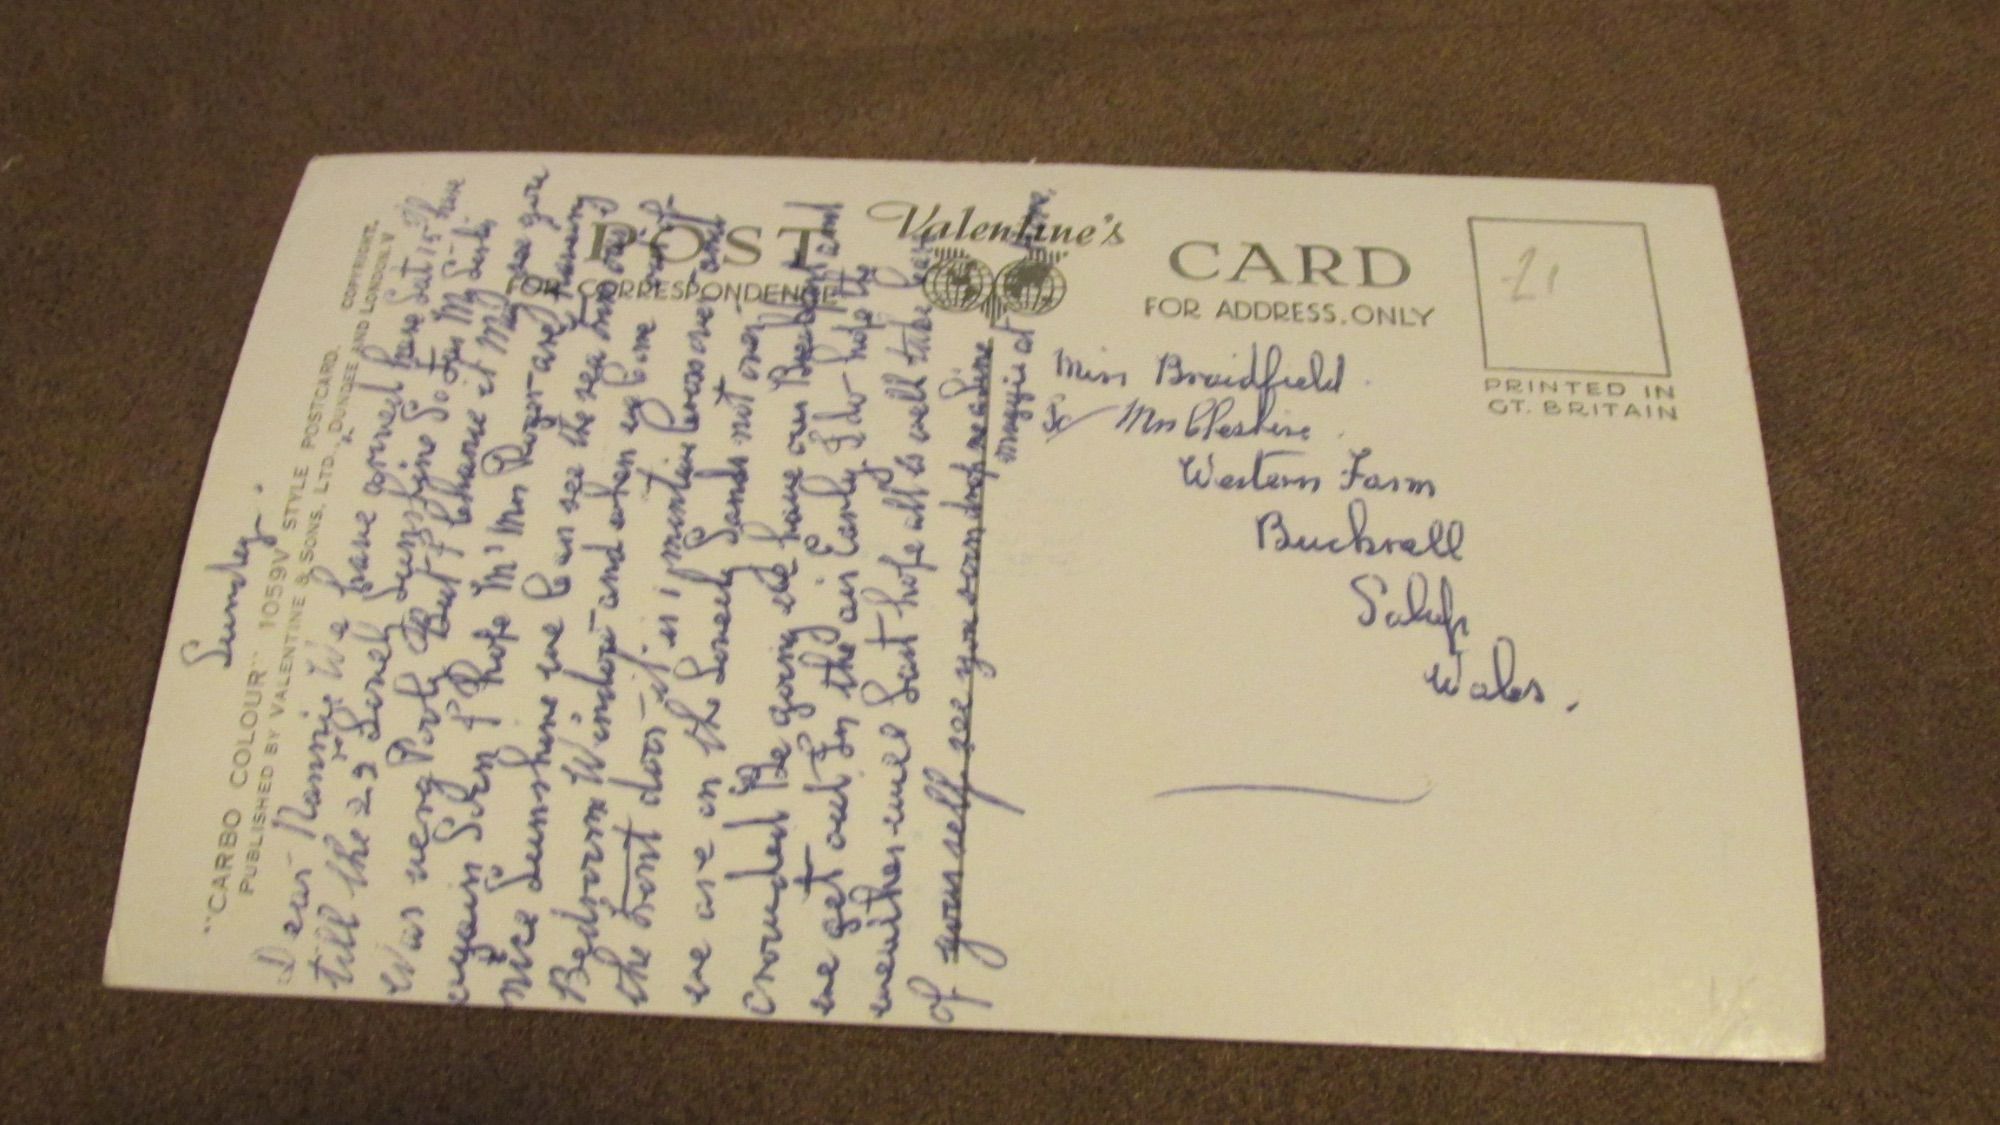 "CARBO COLOUR" 1059V STYLE POSTCARD. COPYRIGHT.
PUBLISHED BY VALENTINE & SONS, LTD., DUNDEE AND LONDON. V
POST Valentine's CARD
FOR CORRESPONDENCE FOR ADDRESS.ONLY
PRINTED IN
GT. BRITAIN
21
Sunday.
Dear Nannie We have arrived here Sat 15th
till the 29 Lovely Sunshine So far My Sister
was very Poorly But have
again Son I Hope Mr Mrs Roger are
Nice Sunshine we Can see the sea from our
Bedroom Window and when we Come out of
the front door it is 1 minute across and
we are on the Lovely Sands not over
Crowded Be going we have our Breakfast and
we get out In the air Early I do hope the
weather will Last hope all is well take care
of your self see you soon
Maggie at
Miss Braidfield
c/o Mrs Cheshire
Western Farm
Bucknell
Salop
Wales.